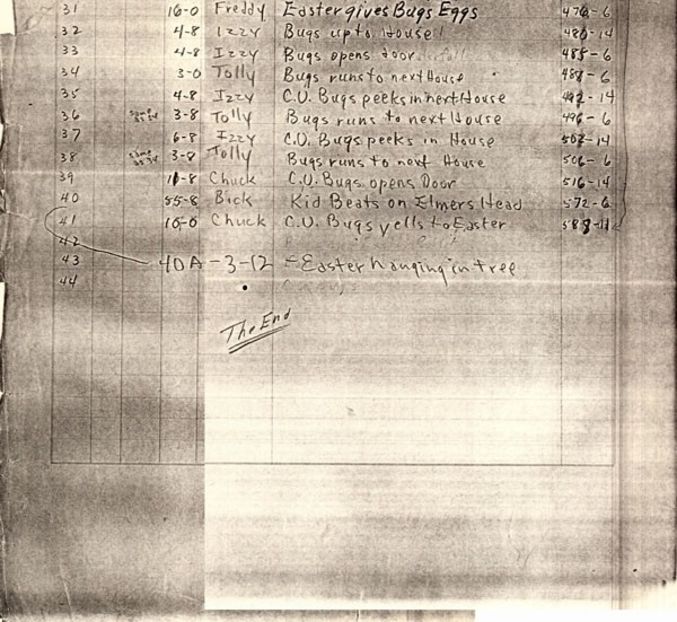 31 16-0 Freddy Easter gives Bugs Eggs 476-6
32 4-8 Izzy Bugs up to House! 480-14
33 4-8 Izzy Bugs opens door 485-6
34 3-0 Tolly Bugs runs to next House 488-6
35 4-8 Izzy C.U. Bugs peeks in next House 492-14
36 3-8 Tolly Bugs runs to next House 496-6
37 6-8 Izzy C.U. Bugs peeks in House 502-14
38 3-8 Tolly Bugs runs to next House 506-6
39 10-8 Chuck C.U. Bugs opens Door 516-14
40 55-8 Bick Kid Beats on Elmers Head 572-6
41 16-0 Chuck C.U. Bugs yells to Easter
42
43 40A-3-12 - Easter hanging in tree
44
The End